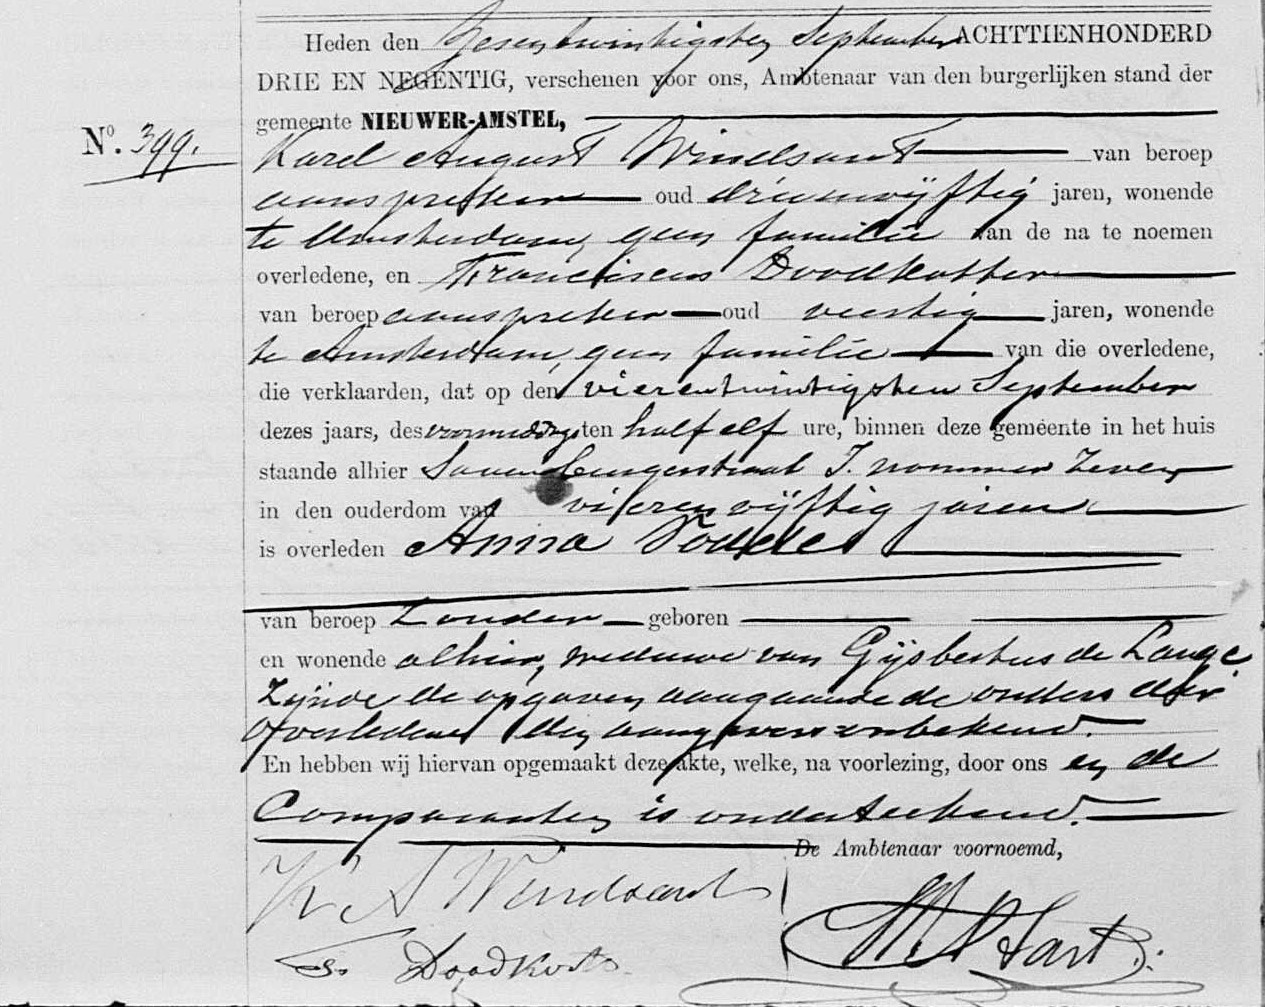 Heden den zesentwintigsten September ACHTTIENHONDERD
DRIE EN NEGENTIG, verschenen voor ons, Ambtenaar van den burgerlijken stand der
gemeente NIEUWER-AMSTEL,
No. 399.
Karel August Windsant van beroep
aanspreker oud drieenvijftig jaren, wonende
te Amsterdam, geen familie van de na te noemen
overledene, en Franciscus Doodkorte
van beroep aanspreker oud veertig jaren, wonende
te Amsterdam, geen familie van die overledene,
die verklaarden, dat op den vierentwintigsten September
dezes jaars, des voormiddags ten half elf ure, binnen deze gemeente in het huis
staande alhier straat J. nommer zeven
in den ouderdom van vierenvijftig jaren
is overleden Anna
van beroep zonder geboren
en wonende alhier, weduwe van Gijsbertus de Lange
zijnde de opgaven aangaande de ouders der
overledene den aangevers onbekend.
En hebben wij hiervan opgemaakt deze akte, welke, na voorlezing, door ons en de
Comparanten is onderteekend.
De Ambtenaar voornoemd,
K A Windsant
F. Doodkorte